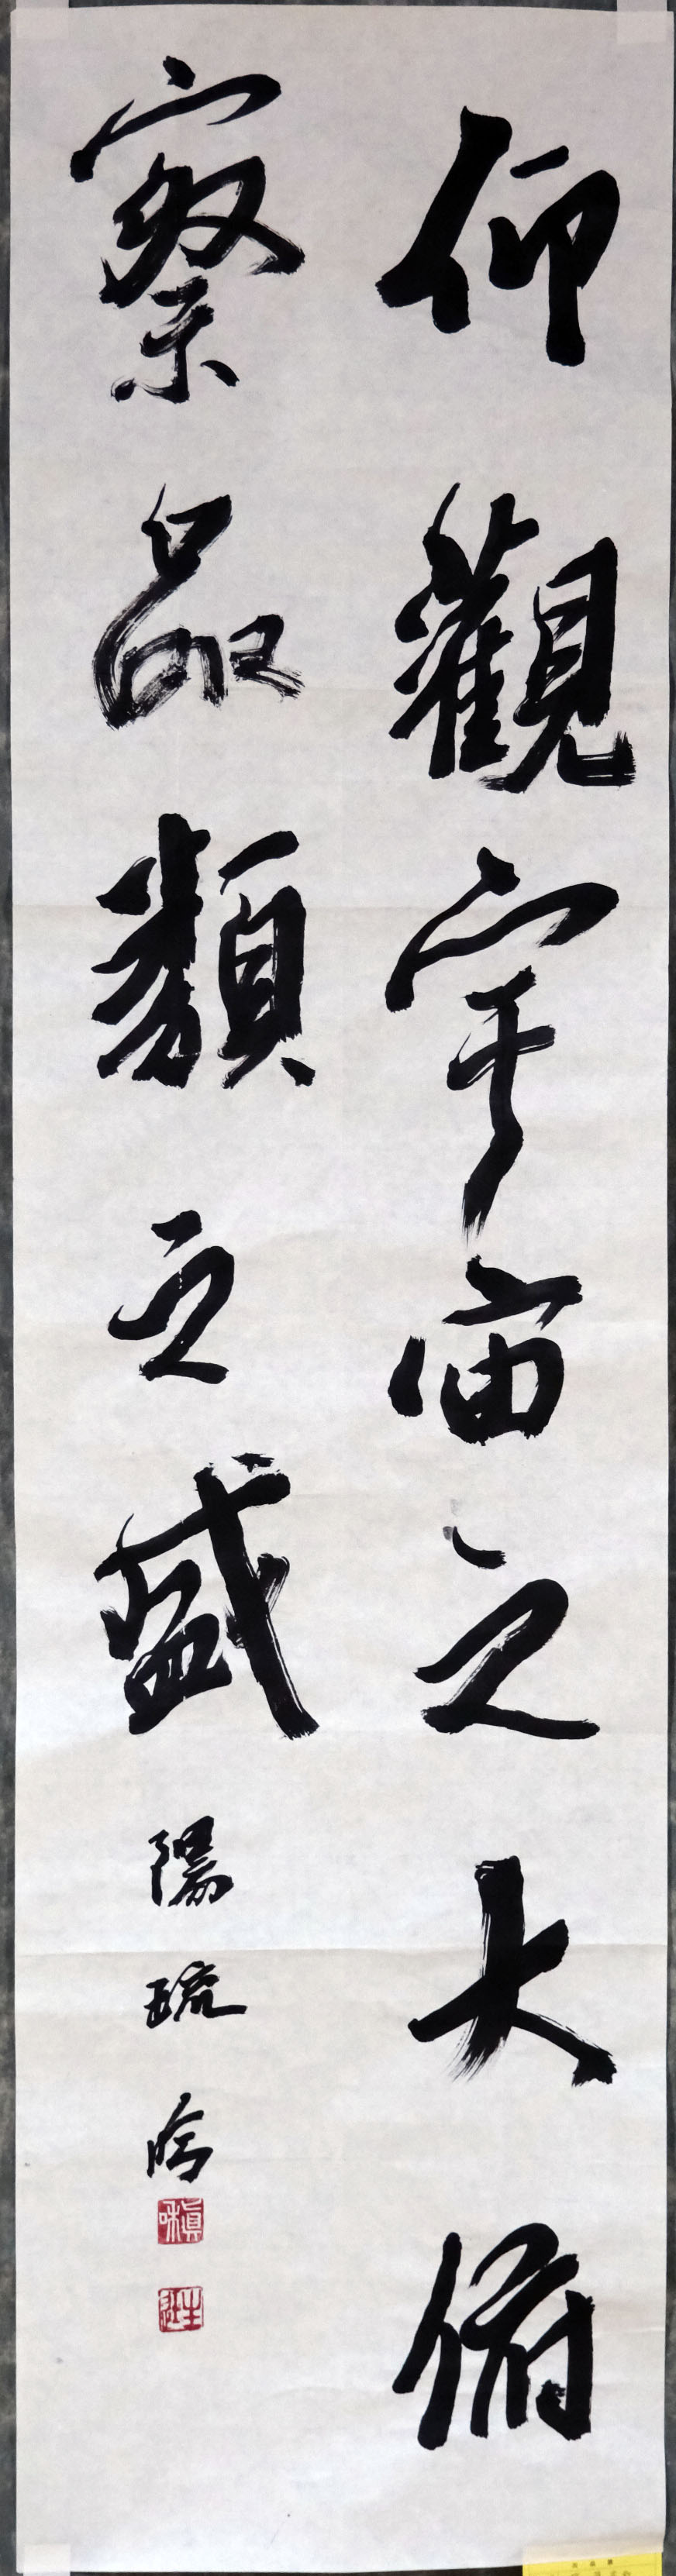 仰觀宇宙之大俯
察品類之盛 陽琉吟